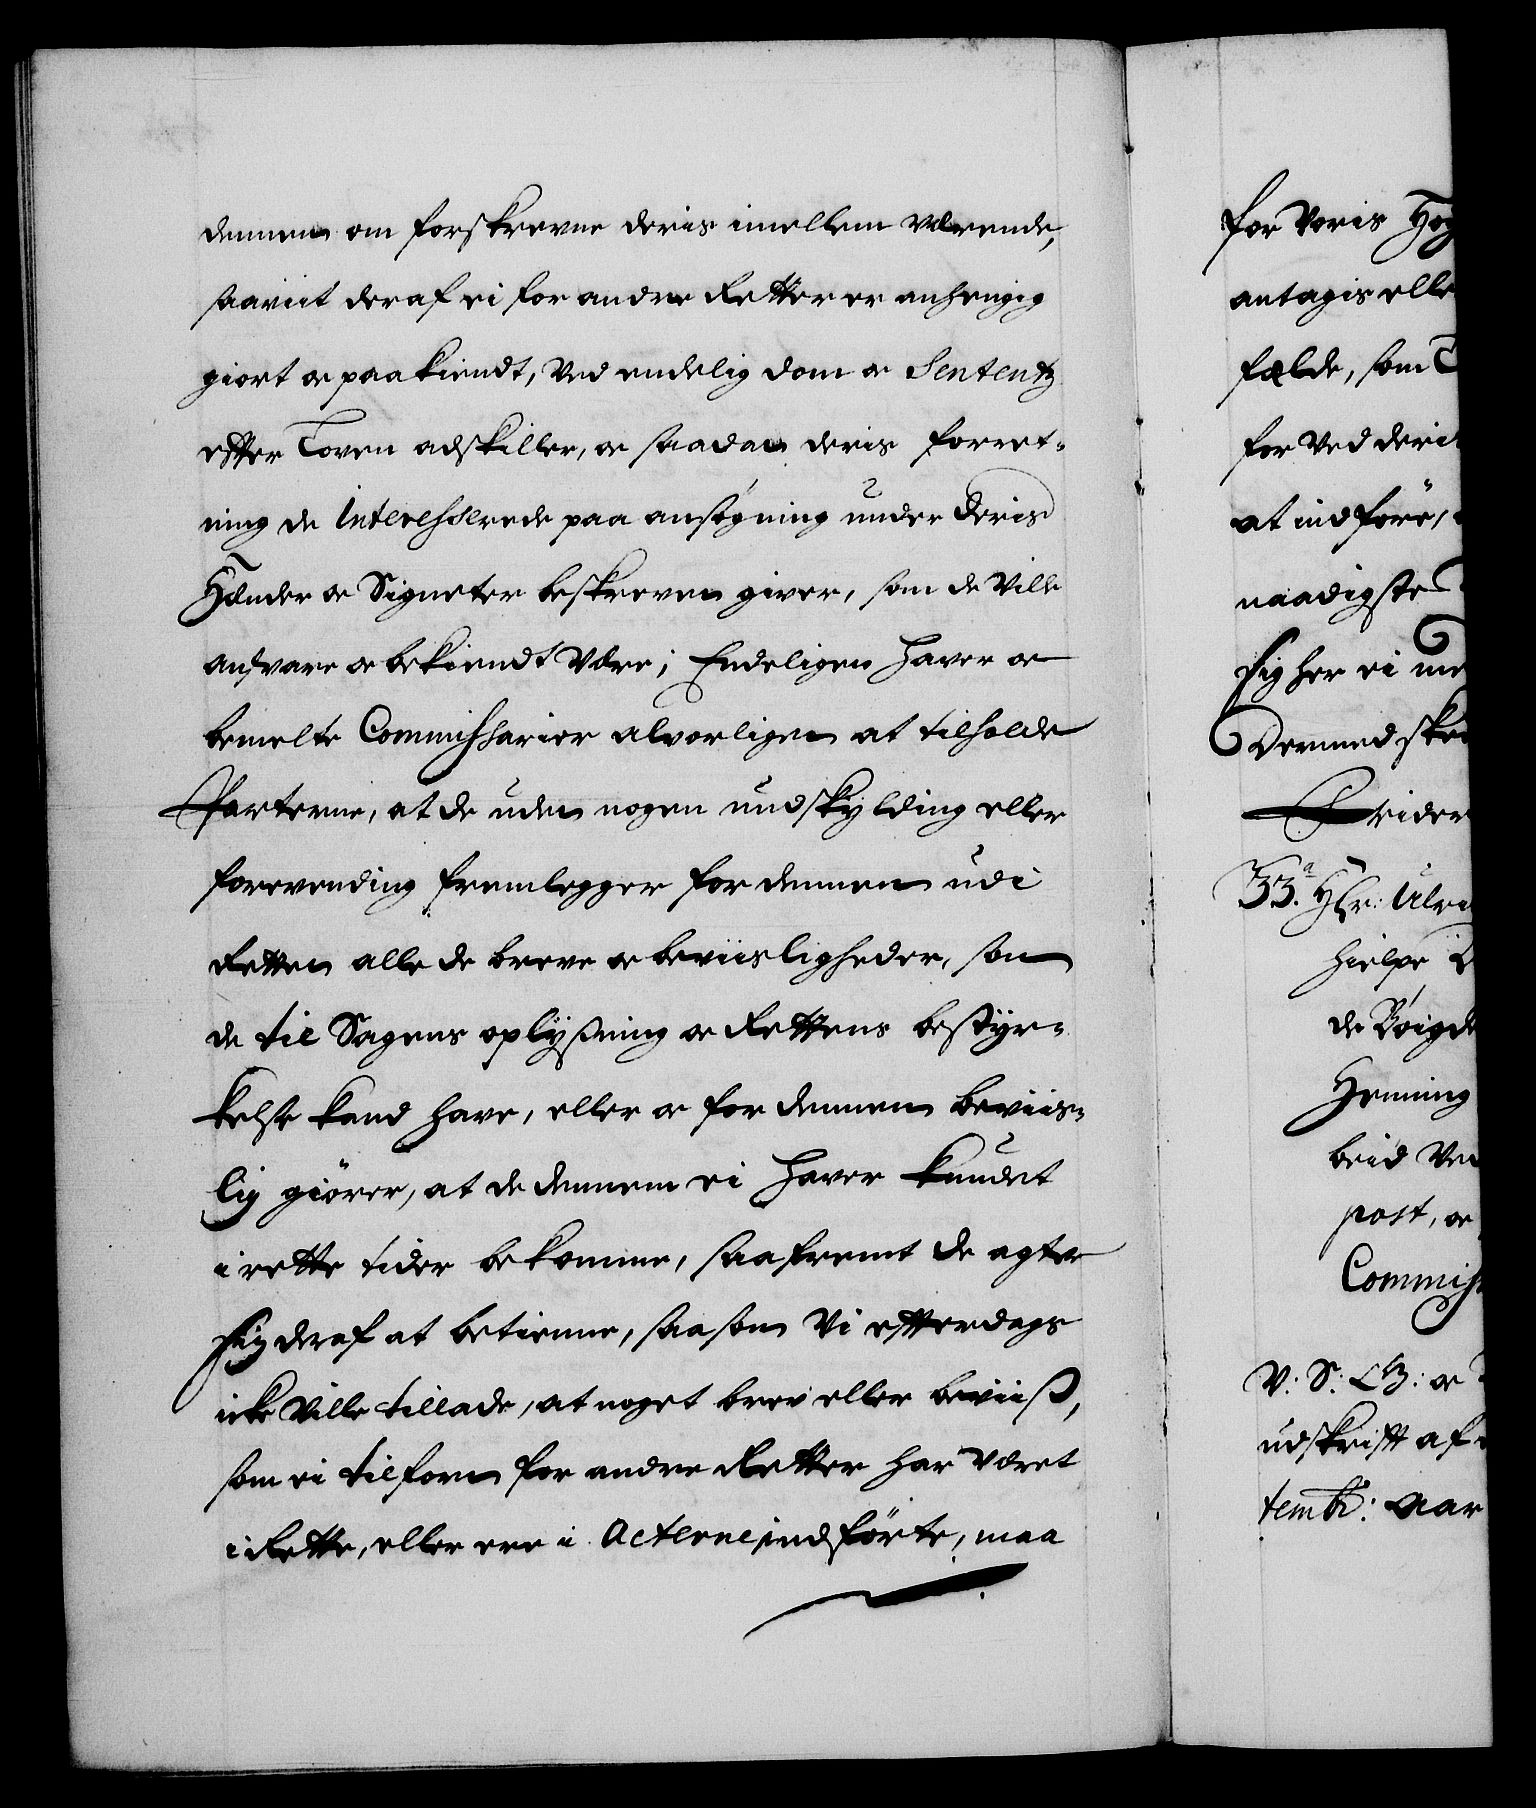 dennem om forskrevne deris imellem værende,
saaviit deraf ei for andre Retter er anhengig
giort oc paakiendt, ved endelig dom oc Sententz
effter Loven adskiller, oc saadan deris forret-
ning de Interesserede paa ansøgning under deris
Hænder oc Signeter beskreven giver, som de ville
ansvare oc bekiendt være; Endeligen haver oc
bemelte Commissharier alvorligen at tilholde
Parterne, at de uden nogen undskylding eller
forevending fremlegger for dennem udi
Retten alle de breve oc beviisligheder, som
de til Sagens oplyßning oc Rettens bestyr-
kelse kand have, eller oc for dennem beviis-
lig giører, at de dennem ei haver kundet
i rette tider bekomme, saafremt de agter
sig deraf at betienne, saasom Vi effterdags
icke ville tillade, at noget brev eller beviiß,
som ei tilforn for andre Retter har været
i Rette, eller ere i Acterne indførte, maa
for Voris Høy
antagis elle
fælde, som
for ved deri
at indføre,
naadigste
sig her ei
Dermed ske
33. Hr: Ulri
hielpe
de Bøigde
Henning
beid Ve
post, oc
Commiss
V: S: oc
udskrifft af
temb: Aar